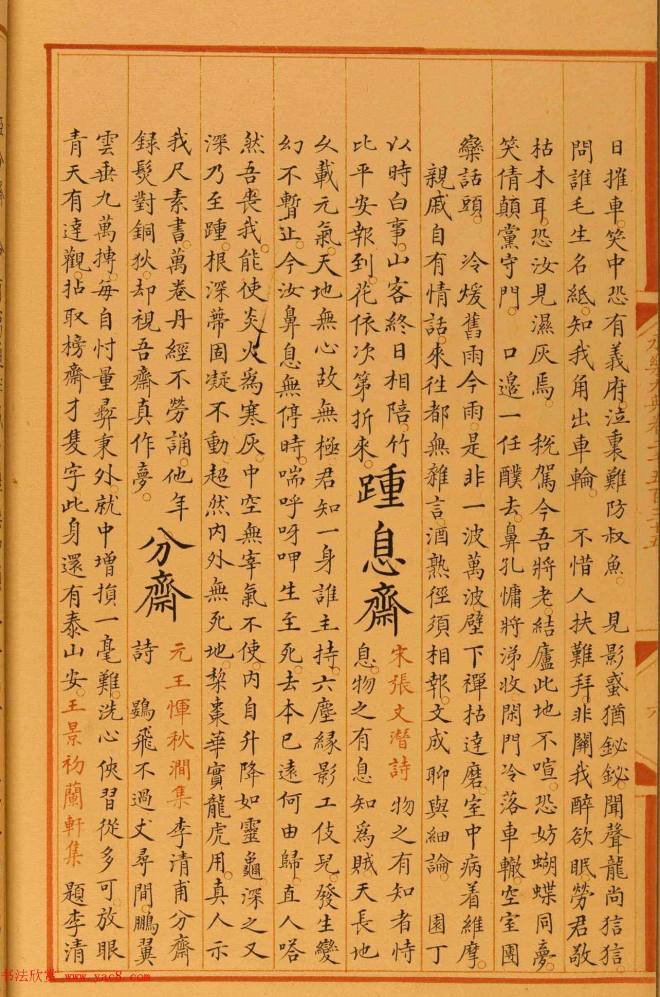 永樂大典卷二千五百三十五
日摧車。笑中恐有義府泣裏難防叔魚。 見影猶鉍鉍。聞聲龍尚狺狺。
問誰毛生名紙。知我角出車輪。 不惜人扶難拜非關我醉欲眠勞君敬
枯木耳。恐汝見濕灰焉。 稅駕今吾將老。結廬此地不喧。恐妨蝴蝶同夢。
笑倩顛黨守門。 口邉一任醭去。鼻孔慵將涕收閑門冷落車轍空室團
欒話頭。 冷煖舊雨今雨。是非一波萬波。壁下禪枯達磨。室中病着維摩。
親戚自有情話。來往都無雜言。酒熟徑須相報。文成聊與細論。 園丁
以時白事。山客終日相陪。竹
比平安報到。花依次第折來。
踵息齋
宋張文潛詩 物之有知者恃
息。物之有息知爲賊天長地
久載元氣。天地無心故無極君知一身誰主持。六塵緣影工伎兒。發生變
幻不暫止。今汝鼻息無停時。喘呼呀呷生至死。去本已遠何由歸。直人嗒
然吾喪我。能使炎火爲寒灰。中空無宰氣不使。内自升降如靈龜。深之又
深乃至踵。根深蔕固凝不動。超然内外無死地。棃棗華實龍虎用。真人示
我尺素書。萬卷丹經不勞誦。他年
録髮對銅狄。却視吾齋真作夢。
分齋
元王惲秋澗集 李清甫分齋
詩 鷃飛不過丈尋間。鵬翼
雲垂九萬摶。每自忖量彝秉外。就中增損一毫難。洗心俠習從多可。放眼
青天有達觀。拈取榜齋才隻字此身還有泰山安。王景初蘭軒集 題李清
书法欣赏 www.yac8.com